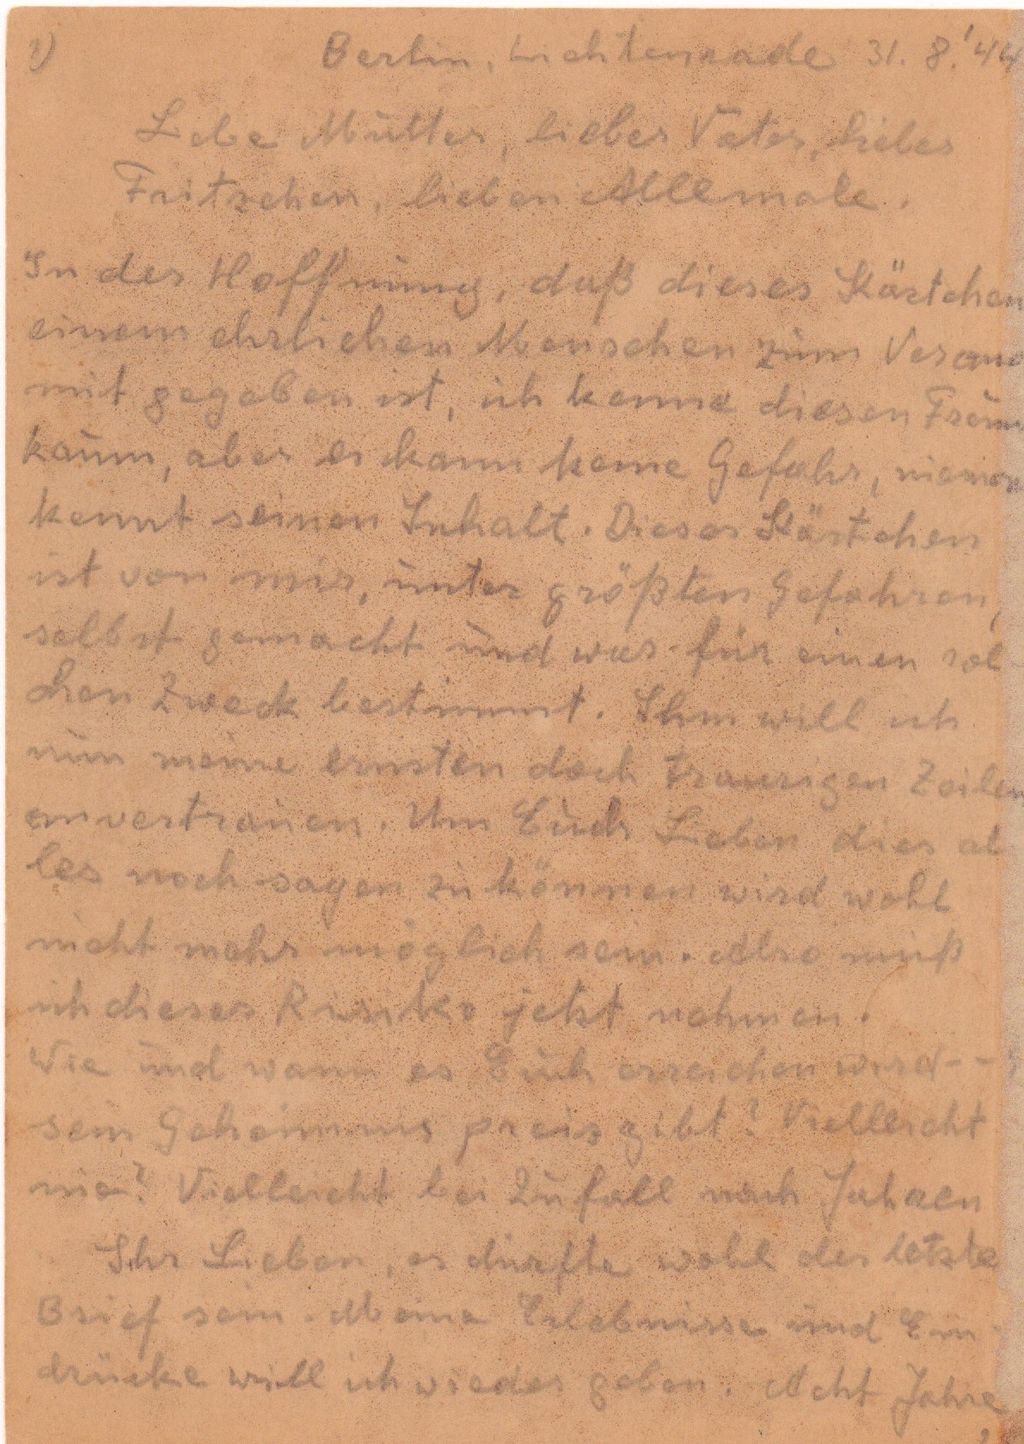 1) Berlin, Lichtenrade 31. 8.' 44
Liebe Mutter, lieber Vater, liebes
Fritzchen, lieben Allemale.
In der Hoffnung, daß dieses Kästchen
einem ehrlichen Menschen zum
mit gegeben ist, ich kenne diesen
kaum, aber er kann keine Gefahr,
kennt seinen Inhalt. Dieses Kästchen
ist von mir, unter größten Gefahren,
selbst gemacht und war für einen sol-
chen Zweck bestimmt. Ihm will ich
nun meine ernsten doch traurigen Zeilen
anvertrauen. Um Euch Lieben dies al-
les noch sagen zu können wird wohl
nicht mehr möglich sein. Also muß
ich dieses Risiko jetzt nehmen.
Wie und wann es Euch erreichen wird --
sein Geheimnis preis gibt? Vielleicht
nie? Vielleicht bei Zufall nach Jahren
Ihr Lieben, es dürfte wohl der letzte
Brief sein. Meine Erlebnisse und Ein-
drücke will ich wieder geben. Acht Jahre